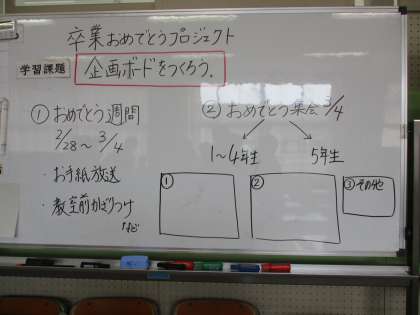 卒業おめでとうプロジェクト
学習課題
企画ボードをつくろう。
① おめでとう週間
2/28～3/4
・お手紙放送
・教室前かざりつけ
など
② おめでとう集会 3/4
1～4年生
5年生
①
②
③ その他